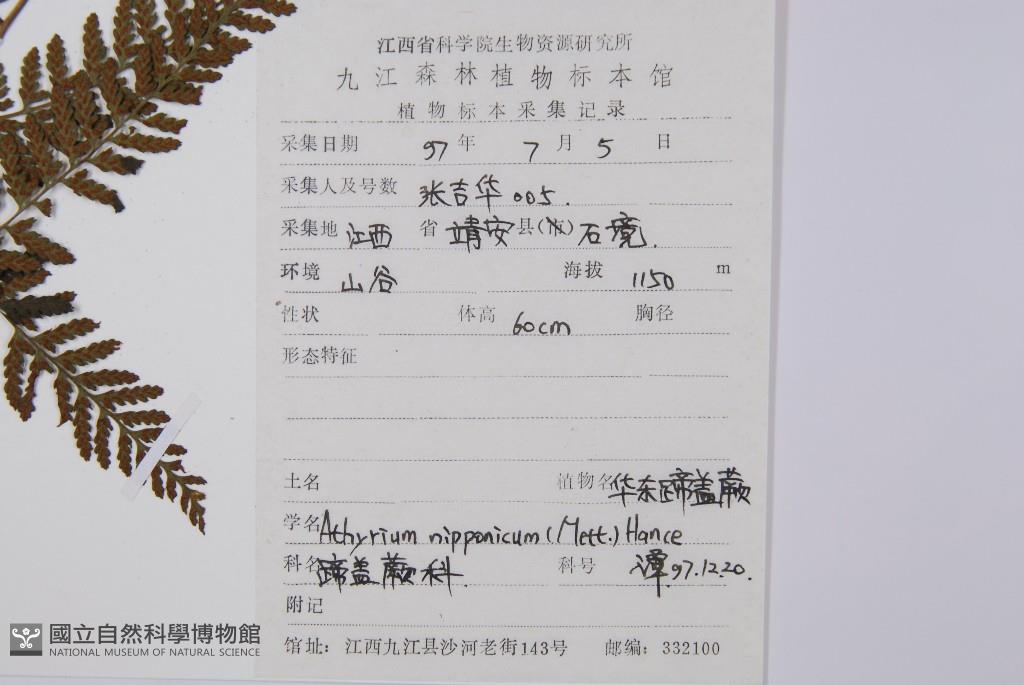 江西省科学院生物资源研究所
九江森林植物标本馆
植物标本采集记录
采集日期 97 年 7 月 5 日
采集人及号数 张吉华 005.
采集地 江西 省 靖安 县(市) 石境.
环境 山谷 海拔 1150 m
性状 体高 60cm 胸径
形态特征
土名 植物名 华东蹄盖蕨
学名 Athyrium nipponicum (Mett.) Hance
科名 蹄盖蕨科. 科号 谭 97.12.20.
附记
馆址: 江西九江县沙河老街143号 邮编: 332100
國立自然科學博物館
NATIONAL MUSEUM OF NATURAL SCIENCE